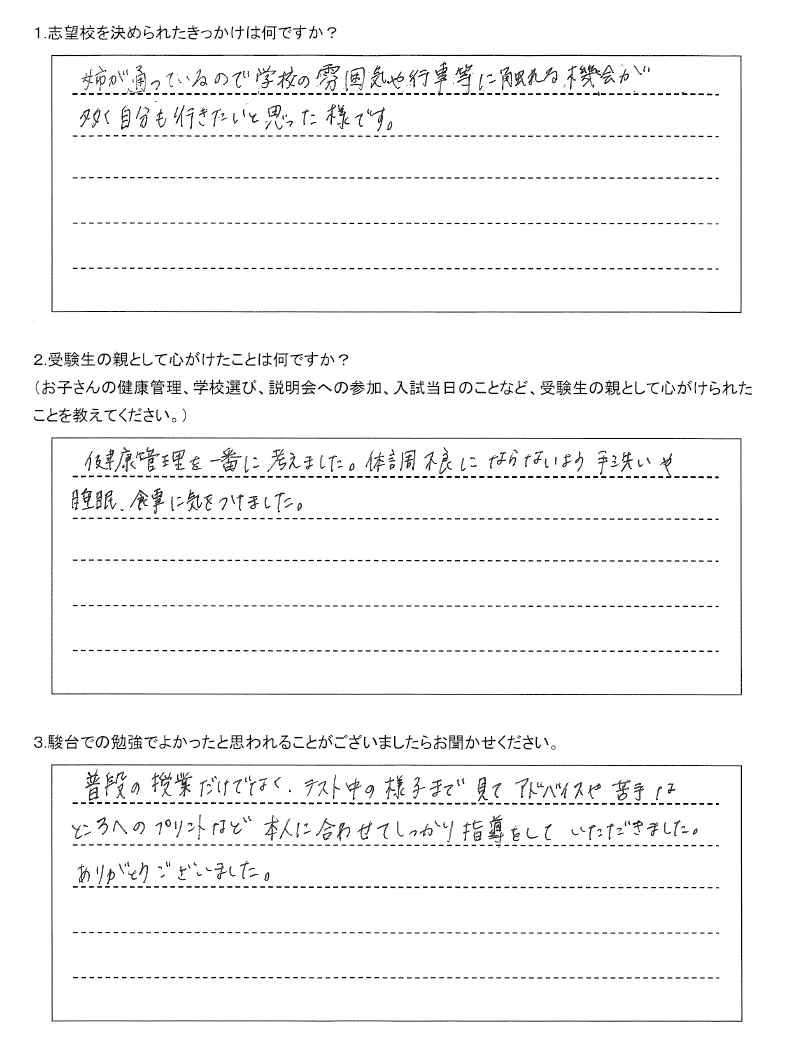 1.志望校を決められたきっかけは何ですか？
姉が通っているので学校の雰囲気や行事等に触れる機会が
多く自分も行きたいと思った様です。
2.受験生の親として心がけたことは何ですか？
（お子さんの健康管理、学校選び、説明会への参加、入試当日のことなど、受験生の親として心がけられた
ことを教えてください。）
健康管理を一番に考えました。体調不良にならないよう手洗いや
睡眠、食事に気をつけました。
3.駿台での勉強でよかったと思われることがございましたらお聞かせください。
普段の授業だけでなく、テスト中の様子まで見てアドバイスや苦手な
ところへのプリントなど本人に合わせてしっかり指導をしていただきました。
ありがとうございました。